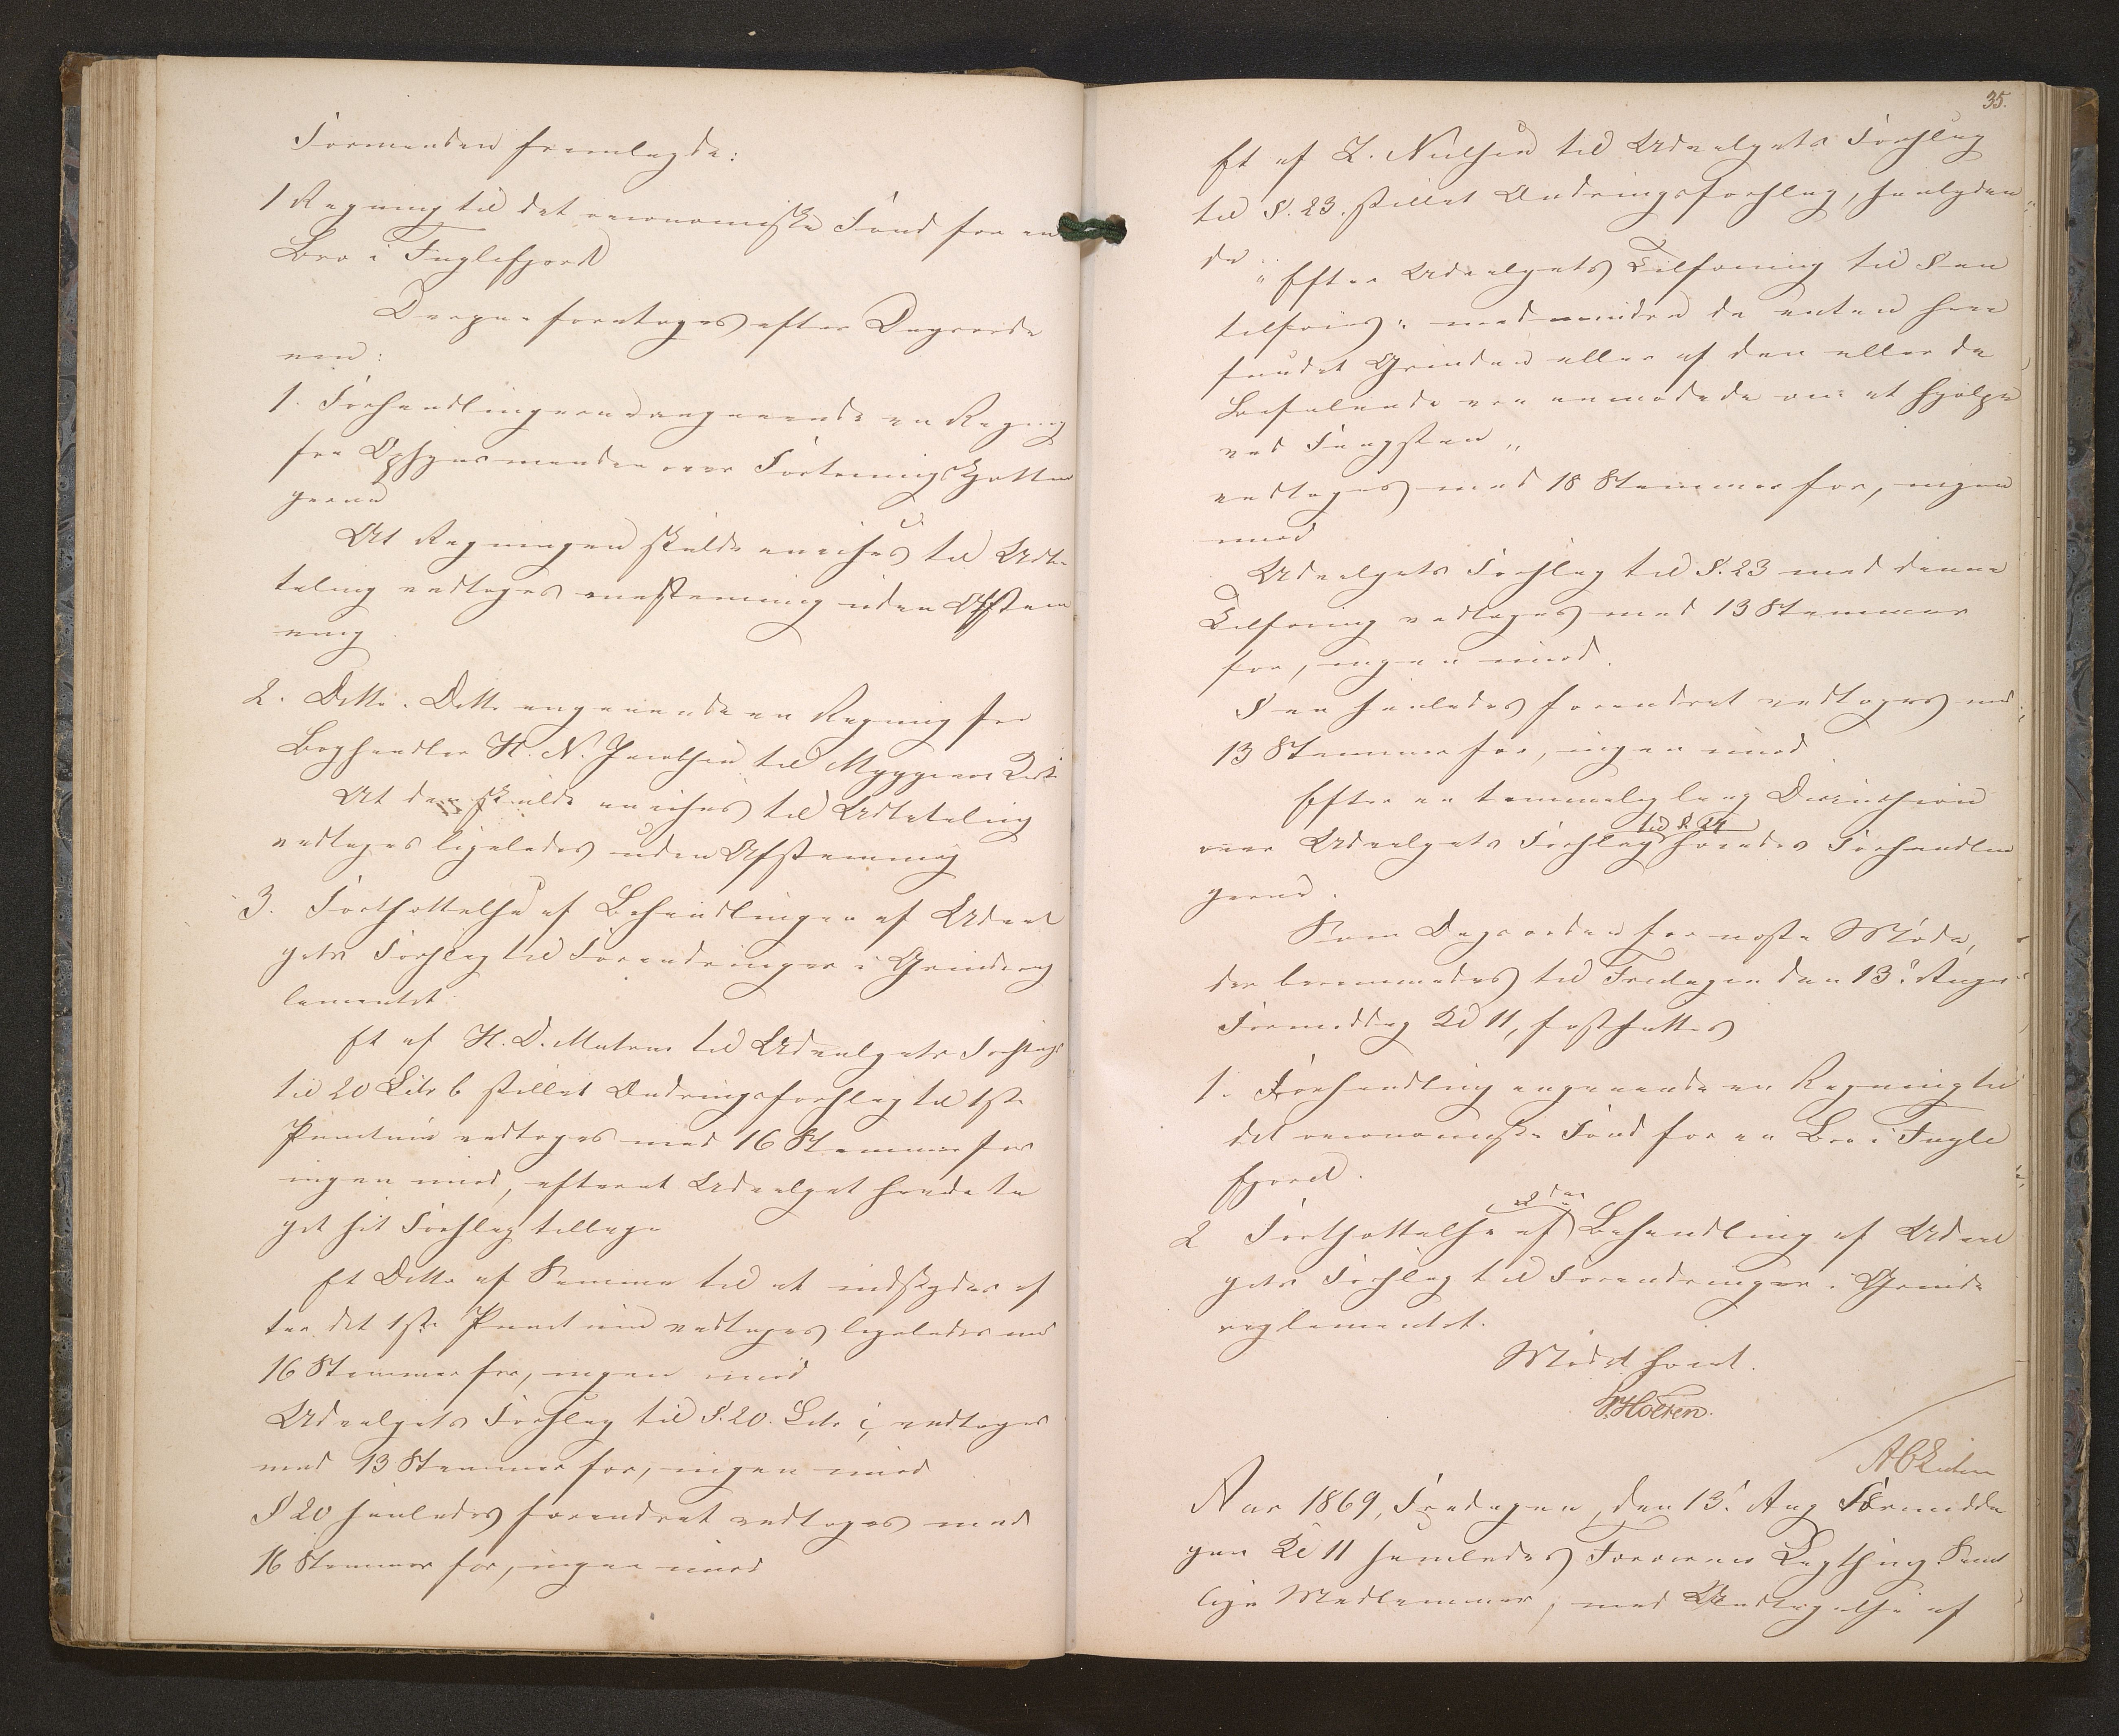 Formanden fremlagde:
1 Regning til det oeconomiske Fond for en
Bro i Fuglefjord
Derpaa foretoges efter Dagsorde
nen:
1. Forhandlingerne angaaende en Regning
fra Opsynsmanden over Fortouingskjættin
gerne
At Regningen skulde anvises til Udbe
taling vedtoges eenstemmig uden Afstem
ning
2. Ditto. Ditto angaaende en Regning fra
Boghandler H. N. Jacobsen til Myggenæs
At den skulde anvises til Udbetaling
vedtoges ligeledes uden Afstemning
3. Fortsættelse af Behandlingen af Udval
gets Forslag til Forandringer i Grindereg
lementet:
Et af H. D. Matras til Udvalgets Forslag
til 20 Litr b stillet Ændringsforslag til 1ste
Punctum vedtoges med 16 Stemmer for
ingen imod, efterat Udvalget havde ta
get sit Forslag tilbage
Et Ditto af Samme til at indskydes ef
ter det 1ste Punctum vedtoges ligeledes med
16 Stemmer for, ingen imod
Udvalgets Forslag til §. 20. Litr c, vedtoges
med 13 Stemmer for, ingen imod
§ 20 saaledes forandret vedtoges med
16 Stemmer for, ingen imod
35.
Et af Z. Nielsen til Udvalgets Forslag
til §. 23. stillet Ændringsforslag, saalyden
de „Efter Udvalgets Tilføining til §en
tilføies: medmindre de enten have
fundet Grinden eller af den eller de
Befalende ere anmodede om at hjælpe
ved Fangsten„
vedtoges med 18 Stemmer for, ingen
imod
Udvalgets Forslag til §. 23 med denne
Tilføining vedtoges med 13 Stemmer
for, ingen imod.
§en saaledes forandret vedtoges med
13 Stemmer for, ingen imod
Efter en temmelig lang Discussion
til § 24
over Udvalgets Forslag hævedes Forhandlin
gerne.
Som Dagsorden for næste Møde,
der berammedes til Fredagen den 13de August
Formiddag Kl 11, fastsattes
1. Forhandling angaaende en Regning til
det oeconomiske Fond for en Bro i Fugle
fjord.
2den
2 Fortsættelse af Behandling af Udval
gets Forslag til Forandringer i Grinde
reglementet.
Mødet hævet.
HCMüller
Aar 1869, Fredagen den 13de Aug Formidda
gen Kl 11 samledes Færøernes Lagthing. Samt
lige Medlemmer, med Undtagelse af